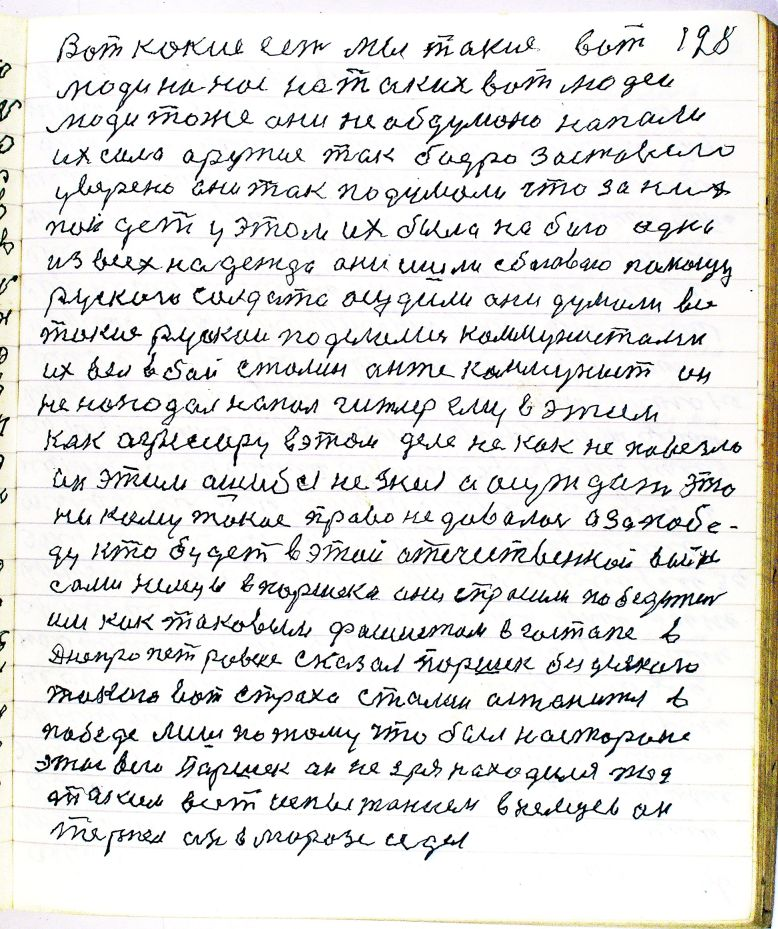 Вот кокие ест мы такие вот 128
люди на нас на таких вот людей
люди тоже они не обдумоно напали
их сила оружие так бодро заставело
уверено они так подумоли что за них
пойдет у этом их была на бого одна
из всех надежда они шли с боговаю помощу
руского солдата они думоли все
такие руские поделилися коммунистами
их вел в бой сталин анте коммунист он
не нападал напал гитлер ему в этим
как агрессиру в этом деле не как не повезло
он этим ошибся не знал а осуждат это
никому такое право не давалос а за побе-
ду кто будет в этой отечественной войне
сами немци в паршека они спрашили победител
им как таковым фашистам в гостапе в
Днепропетровске сказал паршек без усякого
такого вот страха сталин астанится в
победе лиш потому что был настороне
этого его Паршек он не зря находился под
таким вот испытанием в немцев он
терпел он в морозе сидел